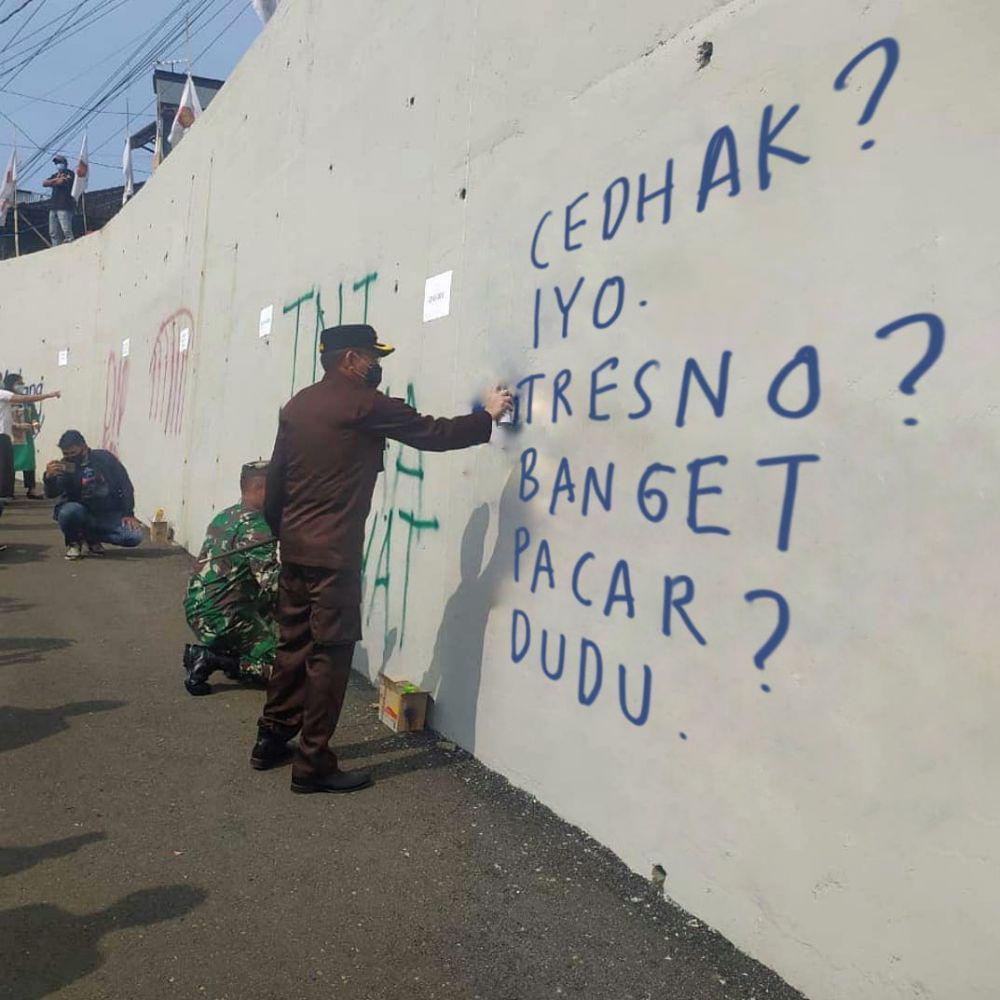 CEDHAK?
IYO.
TRESNO?
BANGET
PACAR?
DUDU.
TNI